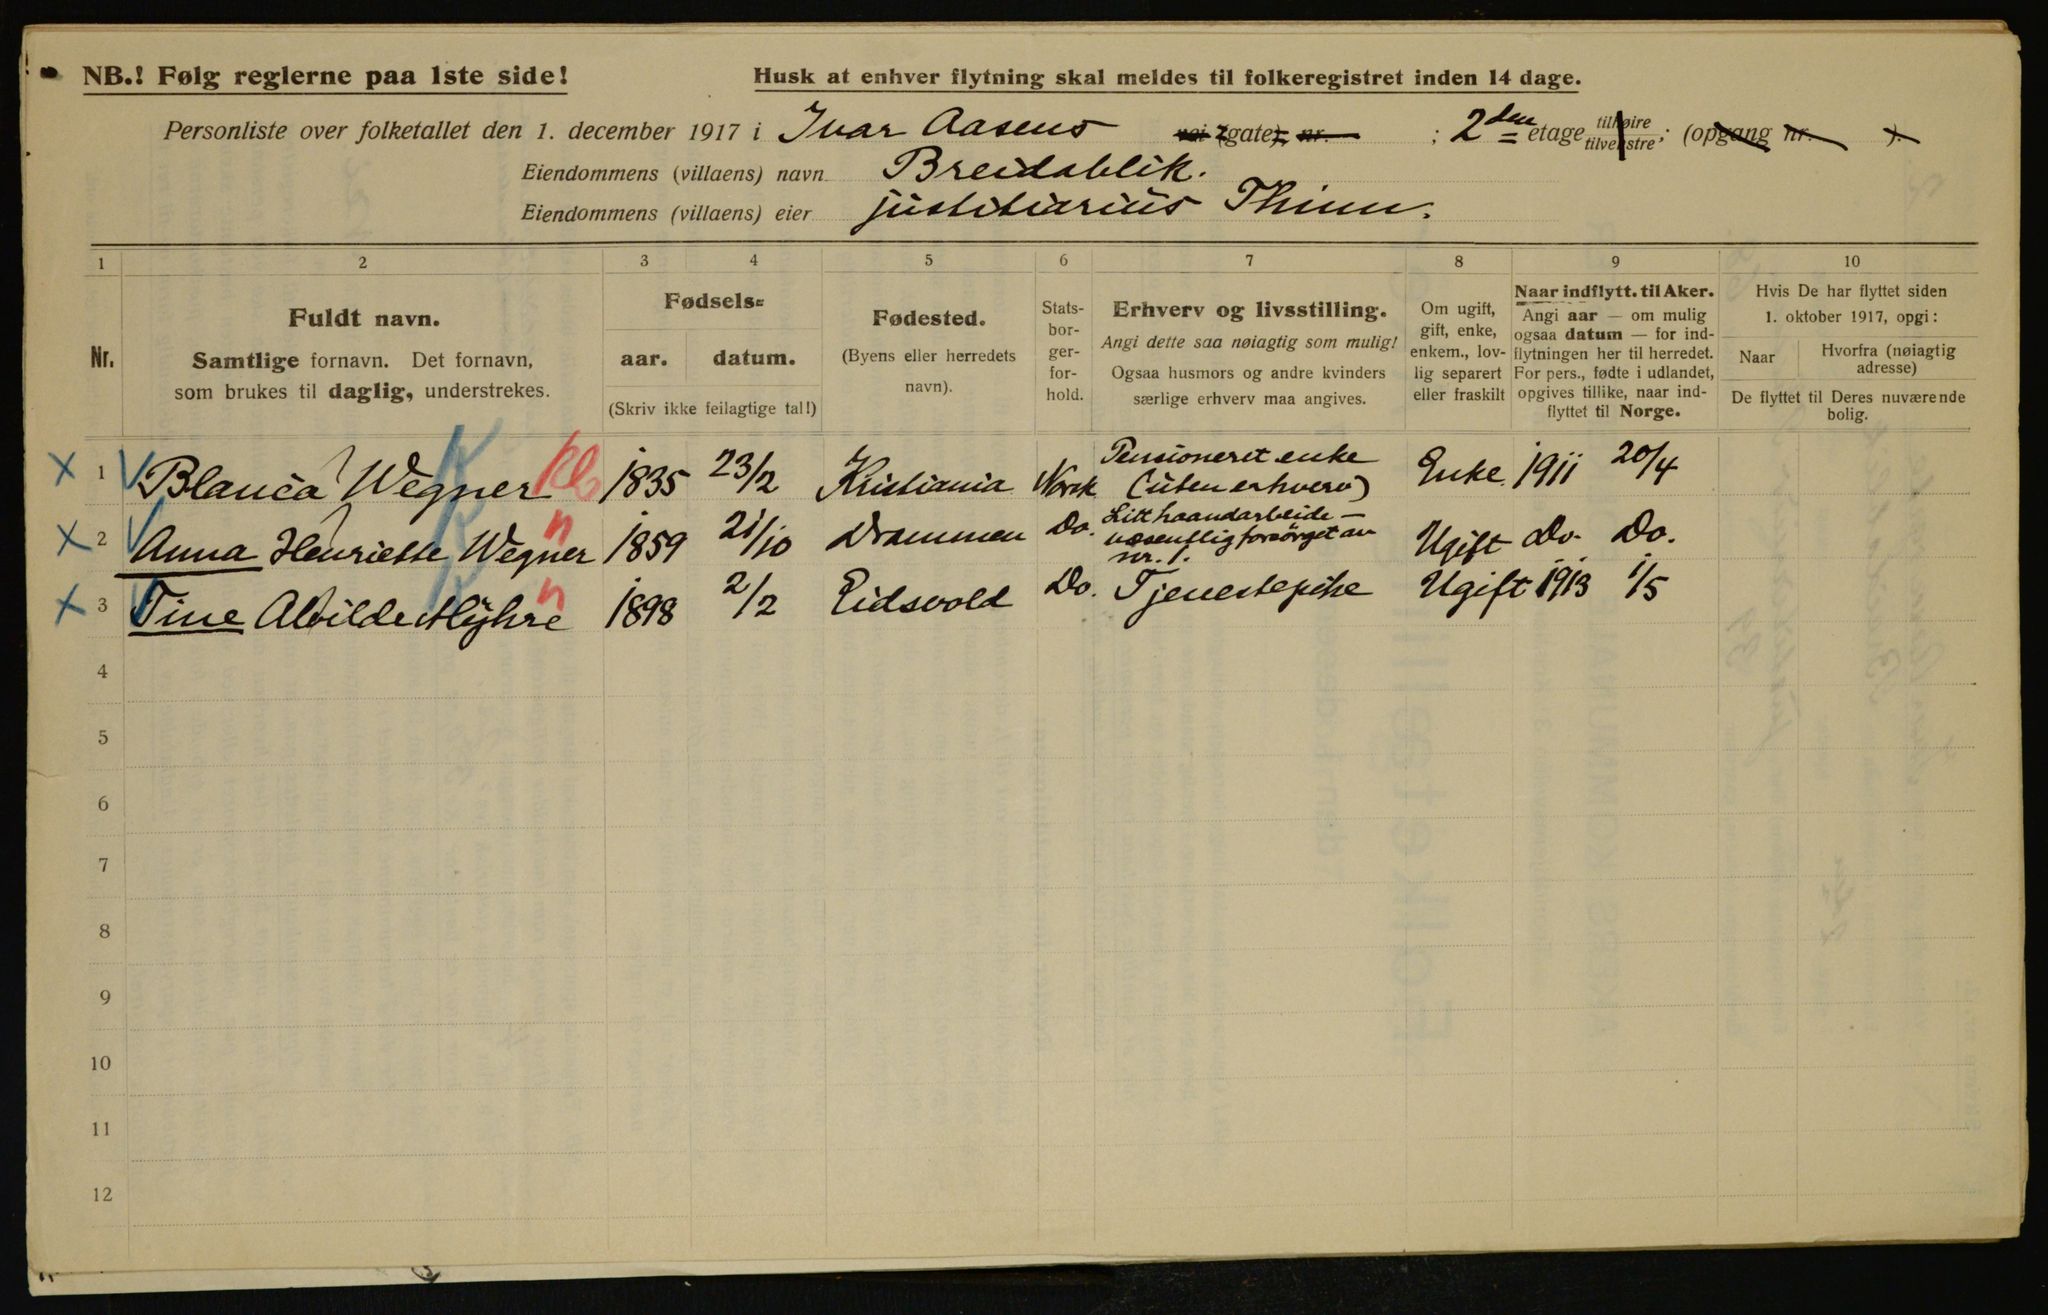 NB.! Følg reglerne paa 1ste side!
Husk at enhver flytning skal meldes til folkeregistret inden 14 dage.
Personliste over folketallet den 1. december 1917 i Ivar Aasens vei (gate), nr. ; 2den etage tilhøire tilvenstre; (opgang nr. ).
Eiendommens (villaens) navn Breidablik.
Eiendommens (villaens) eier justitiarius Thinn.
1 2 3 4 5 6 7 8 9 10
Nr.
Fuldt navn.
Samtlige fornavn. Det fornavn,
som brukes til daglig, understrekes.
Fødsels=
aar. datum.
(Skriv ikke feilagtige tal!)
Fødested.
(Byens eller herredets
navn).
Stats-
bor-
ger-
for-
hold.
Erhverv og livsstilling.
Angi dette saa nøiagtig som mulig!
Ogsaa husmors og andre kvinders
særlige erhverv maa angives.
Om ugift,
gift, enke,
enkem., lov-
lig separert
eller fraskilt
Naar indflytt. til Aker.
Angi aar — om mulig
ogsaa datum — for ind-
flytningen her til herredet.
For pers., fødte i udlandet,
opgives tillike, naar ind-
flyttet til Norge.
Hvis De har flyttet siden
1. oktober 1917, opgi:
Naar
Hvorfra (nøiagtig
adresse)
De flyttet til Deres nuværende
bolig.
1 Blanca Wegner 1835 23/2 Kristiania Norsk Pensioneret enke (uten erhverv) Enke 1911 20/4
2 Anna Henriette Wegner 1859 21/10 Drammen Do. Litt haandarbeide — væsentlig forsörget av nr. 1. Ugift Do. Do.
3 Tine Alvilde Myhre 1898 2/2 Eidsvold Do. Tjenestepike Ugift 1913 1/5
4
5
6
7
8
9
10
11
12